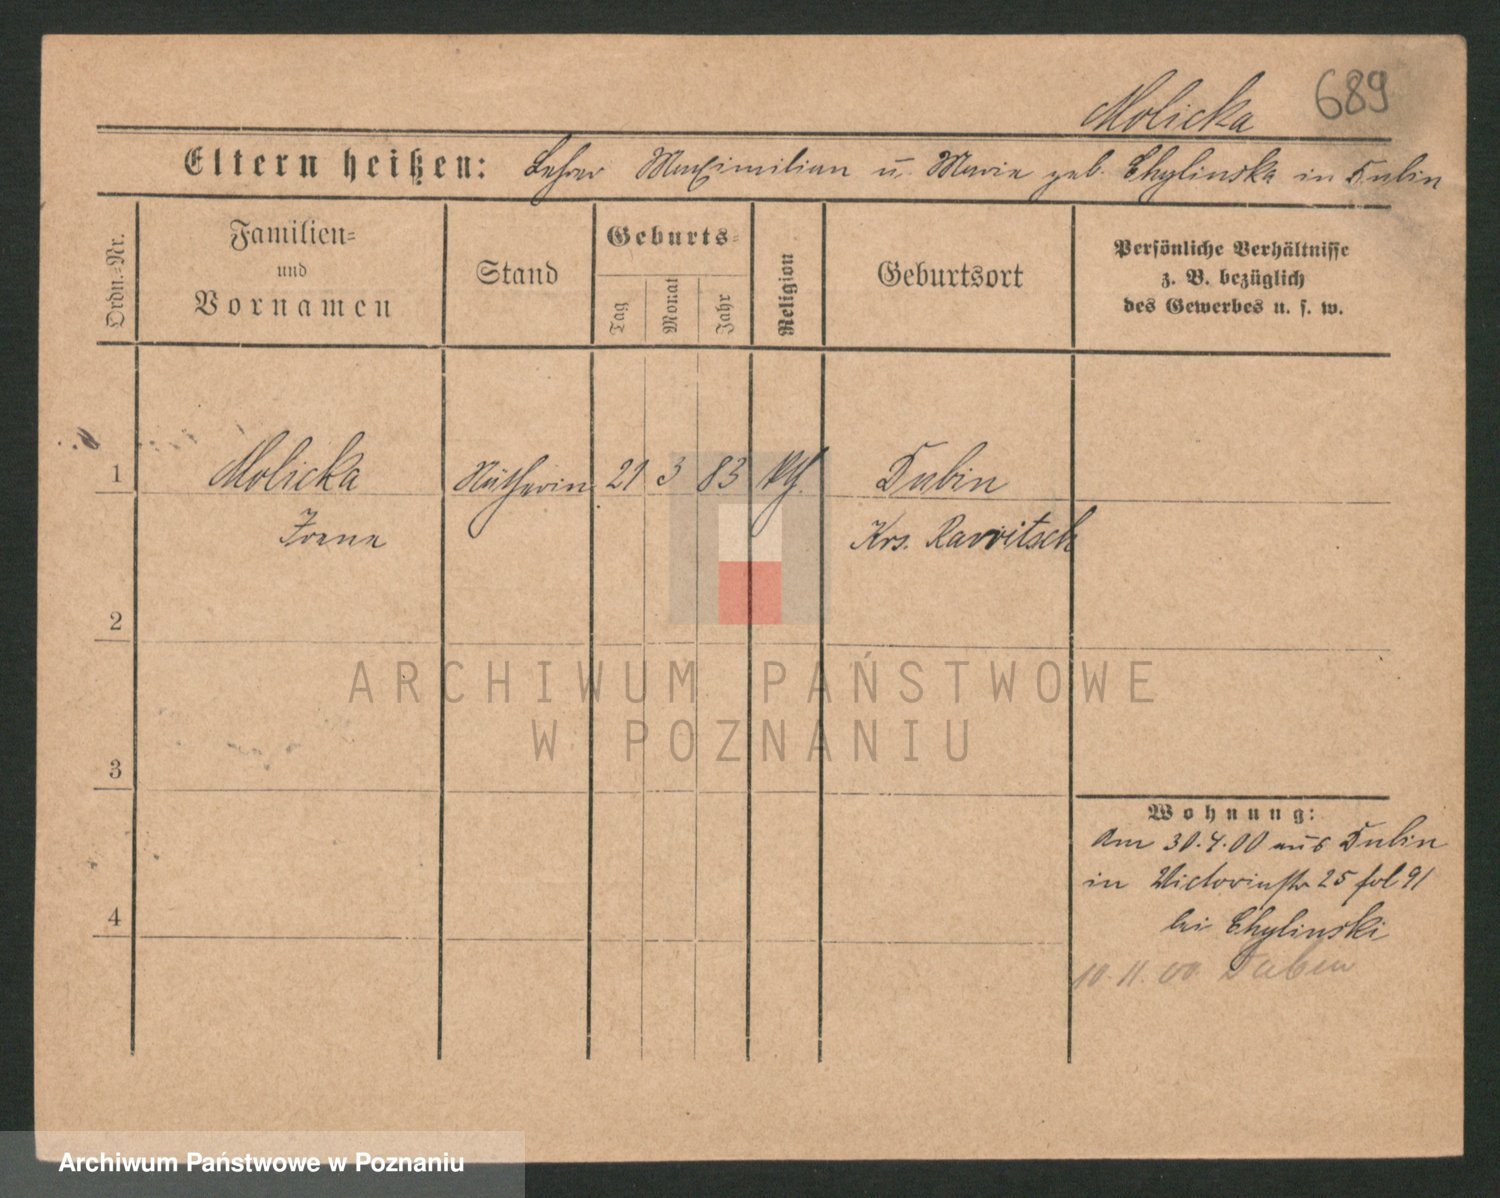 Molicka 689
Eltern heißen: Lehrer Maximilian u. Marie geb. Chylinska in Dubin
Ordn.-Nr.
Familien-
und
Vornamen
Stand
Geburts-
Tag
Monat
Jahr
Religion
Geburtsort
Persönliche Verhältnisse
z. B. bezüglich
des Gewerbes u. s. w.
1 Molicka Nätherin 21 3 83 kth. Dubin
Irena Krs. Rawitsch
2
ARCHIWUM PAŃSTWOWE
W POZNANIU
3
Wohnung:
Am 30.4.00 aus Dubin
in Victoriastr 25 fol 91
4
bei Chylinski
10.11.00 Dubin
Archiwum Państwowe w Poznaniu